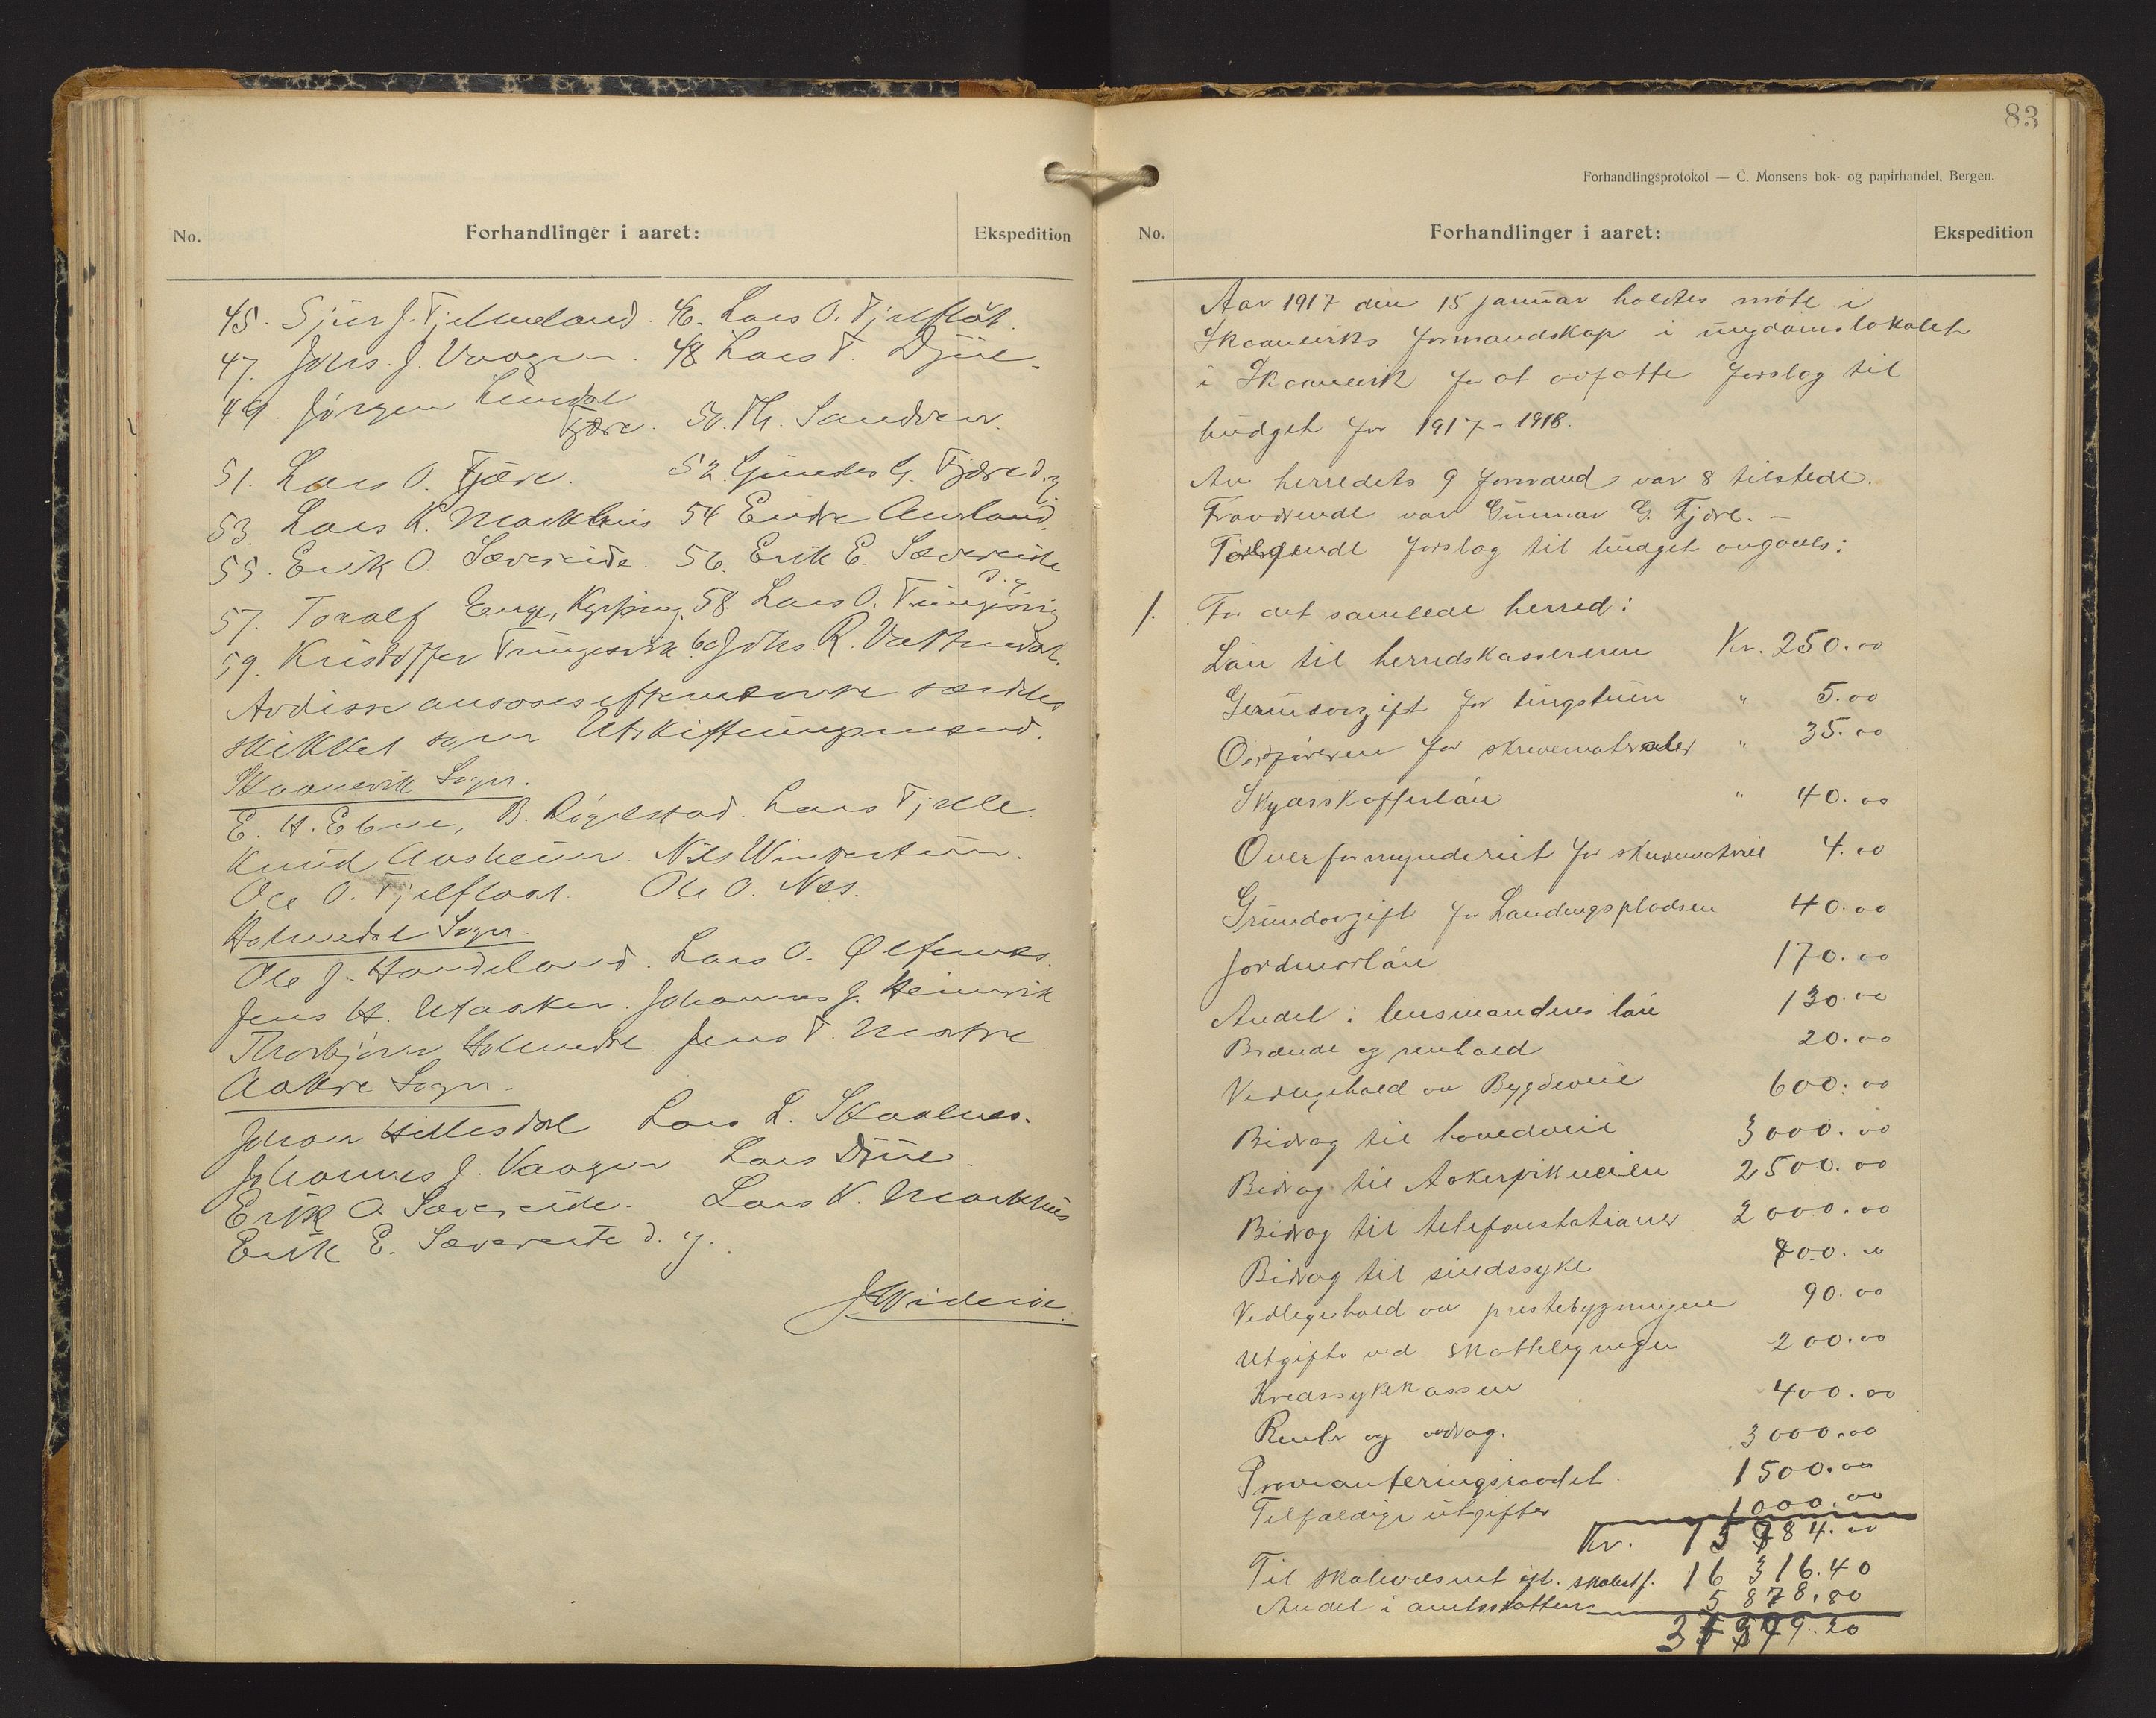 No.
Forhandlinger i aaret:
Ekspedition
45. Sjur J. Tjelmeland. 46. Lars O. Fjelflåt.
47. Johs. J. Vaagen. 48 Lars T. Djue.
49. Jørgen Lundal
Fjære. 50. Th. Sandven.
51. Lars O. Fjære. 52. G. Fjære d.y.
53. Lars K. Markhus 54 Endre Aurland.
55. Erik O. Sævereide. 56. Erik E. Sævereide
d.y.
57. Toralf Enge, Kyrping. 58. Lars O. Tungesvig
59. Kristoffer Tungesvik. 60 Johs. R. Vattnedal.
Av disse ansaaes efternevnte særdeles
skikket som Utskiftningsmænd.
Skaanevik Sogn.
E. H. Ebne, B. Løgelstad. Lars Fjelle.
Knud Aasheim. Nils Windestun.
Ole O. Fjelflaat. Ole O. Næs.
Holmedal Sogn.
Ole J. Handeland. Lars O. Ølfernes.
Jens H. Utaaker. Johannes J. Heimvik
Thorbjørn Holmedal. Jens T. Matre
Aakre Sogn.
Johan Hillesdal Lars L. Skaalnes.
Johannes J. Vaagen Lars Djue.
Erik O. Sævereide. Lars K. Markhus
Erik E. Sævereide d. y.
83
Forhandlingsprotokol — C. Monsens bok- og papirhandel, Bergen.
No.
Forhandlinger i aaret:
Ekspedition
Aar 1917 den 15 januar holdtes møte i
Skaaneviks formandskap i ungdomslokalet
i Skaanevik for at avfatte forslag til
budget for 1917-1918.
Av herredets 9 formænd var 8 tilstede.
Fraværende var Gunnar G. Fjære. –
Følgende forslag til budget avgaves:
1. For det samlede herred:
Løn til herredskassereren Kr. 250.00
Grundavgift for tingstuen " 5.00
Ordføreren for skrivematrialer " 35.00
Skydsskafferløn " 40.00
Overformynderiet for skrivematriel 4.00
Grundavgift for Landingspladsen 40.00
Jordmorløn 170.00
Andel i lensmandens løn 130.00
Brænde og renhold 20.00
Vedlikehold av Bygdeveie 600.00
Bidrag til hovedveie 3000.00
Bidrag til Aakervikveien 2500.00
Bidrag til telefonstationer 2000.00
Bidrag til sindssyke 800.00
Vedligehold av prestebygningene 90.00
Utgifter ved skatteligningen 200.00
Kredssykekassen 400.00
Renter og avdrag. 3000.00
Provianteringsraadet. 1500.00
Tilfældige utgifter 1000.00
Kr. 15 784.00
Til skolevæsnet eft. skolestf. 16 316.40
Andel i amtsskatten 5 878.80